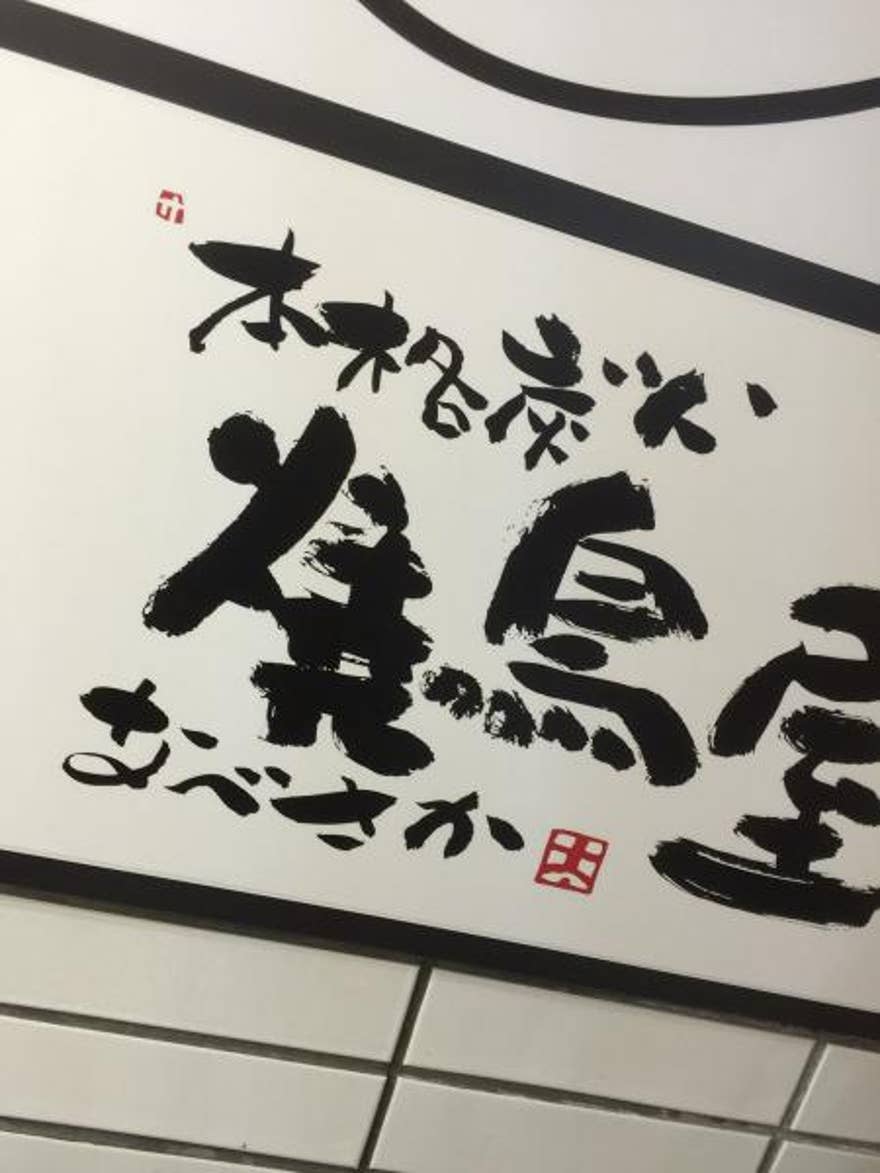 本格炭火
焼鳥屋
むべさか